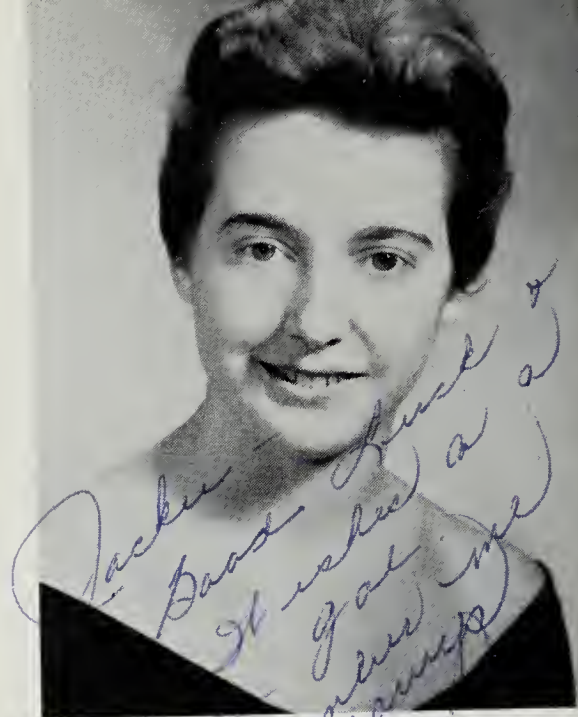 Jackie -
Good Luck &
Wishes a a
gal
me